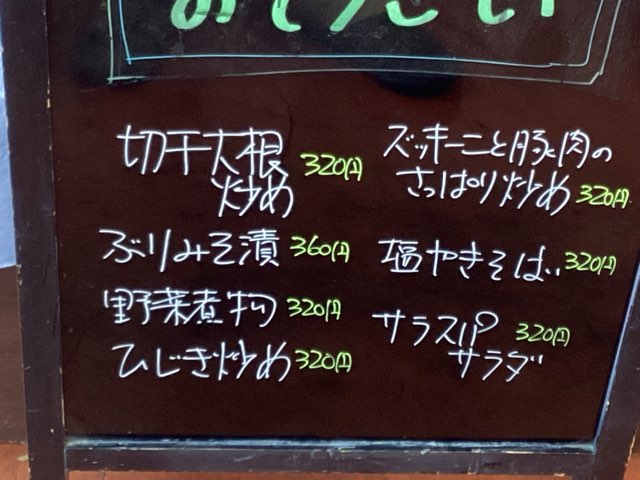 おそうざい
切干大根
炒め 320円
ぶりみそ漬 360円
野菜煮物 320円
ひじき炒め 320円
ズッキーニと豚肉の
さっぱり炒め 320円
塩やきそば 320円
サラスパ
サラダ 320円